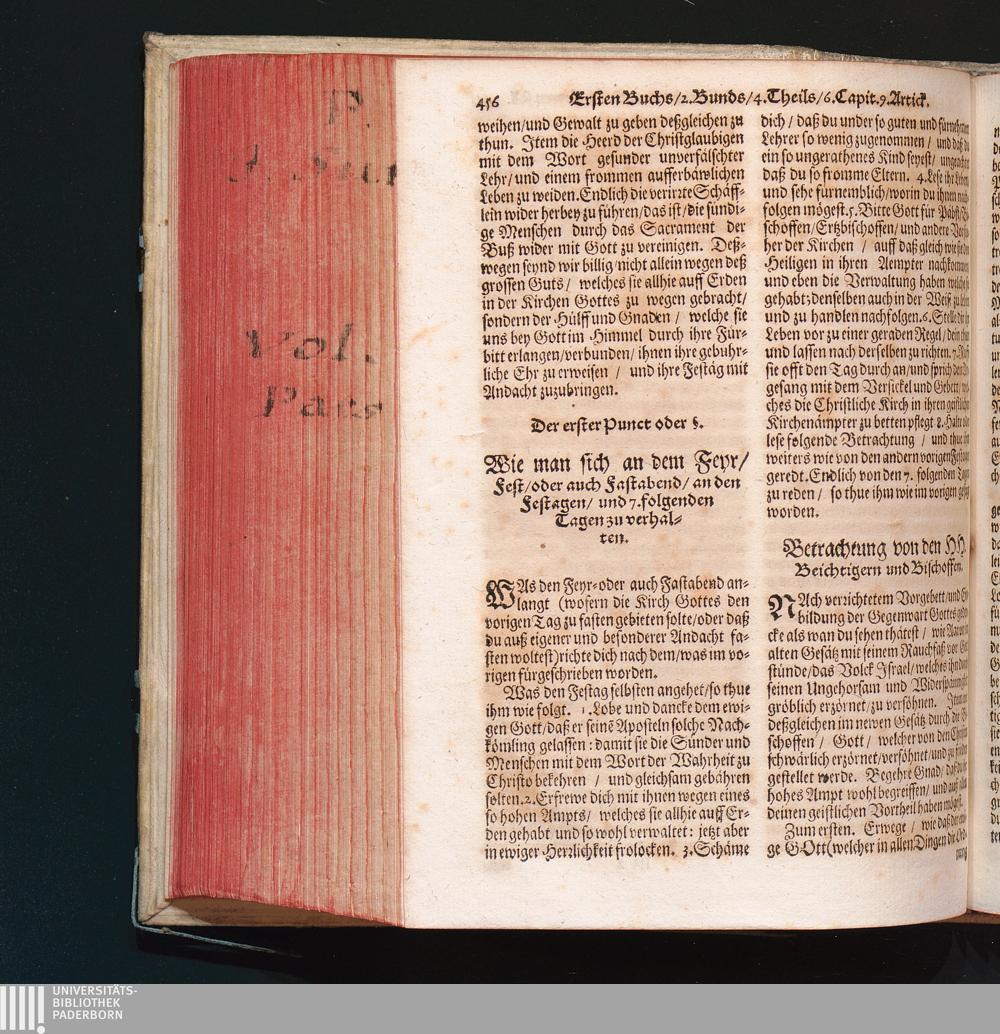 P.
Vol.
Pars
456 Ersten Buchs/2.Bunds/4.Theils/6.Capit.9.Artick.
weihen/und Gewalt zu geben deßgleichen zu
thun. Item die Heerd der Christglaubigen
mit dem Wort gesunder unverfälschter
Lehr/und einem frommen aufferbäwlichen
Leben zu weiden.Endlich die verirzte Schäff-
lein wider herbey zu führen/das ist/die sündi-
ge Menschen durch das Sacrament der
Buß wider mit Gott zu vereinigen. Deß-
wegen seynd wir billig/nicht allein wegen deß
grossen Guts/ welches sie allhie auff Erden
in der Kirchen Gottes zu wegen gebracht/
sondern der Hülff und Gnaden/ welche sie
uns bey Gott im Himmel durch ihre Für-
bitt erlangen/verbunden/ ihnen ihre gebühr-
liche Ehr zu erweisen / und ihre Festäg mit
Andacht zuzubringen.
Der erster Punct oder §.
Wie man sich an dem Feyr/
Fest/oder auch Fastabend/ an den
Festagen/ und 7.folgenden
Tagen zu verhal-
ten.
WAs den Feyr-oder auch Fastabend an-
langt (wofern die Kirch Gottes den
vorigen Tag zu fasten gebieten solte/oder daß
du auß eigener und besonderer Andacht fa-
sten woltest)richte dich nach dem/was im vo-
rigen fürgeschrieben worden.
Was den Festag selbsten angehet/so thue
ihm wie folgt. 1.Lobe und dancke dem ewi-
gen Gott/daß er seinē Aposteln solche Nach-
kömling gelassen: damit sie die Sünder und
Menschen mit dem Wort der Wahrheit zu
Christo bekehren / und gleichsam gebähren
solten.2.Erfrewe dich mit ihnen wegen eines
so hohen Ampts/ welches sie allhie auff Er-
den gehabt und so wohl verwaltet: jetzt aber
in ewiger Herzlichkeit frolocken. 3.Schäme
dich / daß du under so guten und fürnehmen
Lehrer so wenig zugenommen/ und daß du
ein so ungerathenes Kind seyest/
daß du so fromme Eltern. 4.Lese ihr Leben
und sehe fürnemblich/worin du ihnen nach
folgen mögest.5.Bitte Gott für Päbst/
schoffen/Ertzbischoffen/und andere
her der Kirchen / auff daß gleich wie sie den
Heiligen in ihren Aempter nachkommen
und eben die Verwaltung haben welche sie
gehabt;denselben auch in der Weiß zu leben
und zu handlen nachfolgen.6.Stelle dir ihr
Leben vor zu einer geraden Regel/dein thun
und lassen nach derselben zu richten.7.
sie offt den Tag durch an/und sprich den
gesang mit dem Versickel und Gebett/
ches die Christliche Kirch in ihren geistlichen
Kirchenämpter zu betten pflegt 8.Halte oder
lese folgende Betrachtung / und thue ihm
weiters wie von den andern vorigen Festagen
geredt.Endlich von den 7. folgenden Tagen
zu reden / so thue ihm wie im vorigen gesagt
worden.
Betrachtung von den HH.
Beichtigern und Bischoffen.
NAch verrichtetem Vorgebett/und
bildung der Gegenwart Gottes
cke als wan du sehen thätest / wie Aaron im
alten Gesätz mit seinem Rauchfaß vor Gott
stünde/das Volck Israel/welches ihn durch
seinen Ungehorsam und
gröblich erzörnet/zu versöhnen. Item
deßgleichen im newen Gesätz durch die
schoffen/ Gott/ welcher von den Christen
schwärlich erzörnet/versöhnet/und zu frieden
gestellet werde. Begehre Gnad/ daß du ihr
hohes Ampt wohl begreiffen/ und auß allem
deinen geistlichen Vortheil haben mögest.
Zum ersten. Erwege / wie daß der ewi-
ge GOtt(welcher in allen Dingen die Ord-
nung
UNIVERSITÄTS-
BIBLIOTHEK
PADERBORN